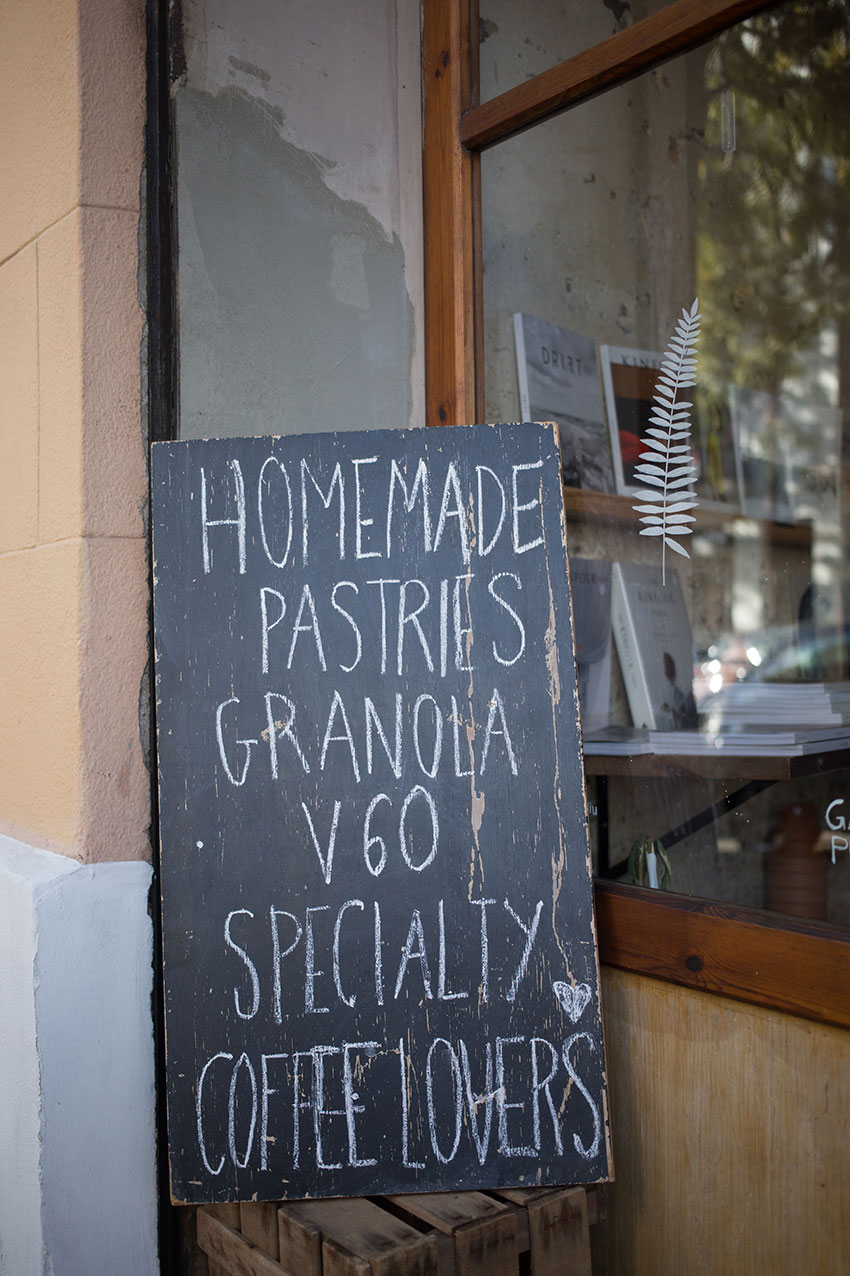 HOMEMADE
PASTRIES
GRANOLA
V60
SPECIALTY
COFFEE LOVERS
DRIFT